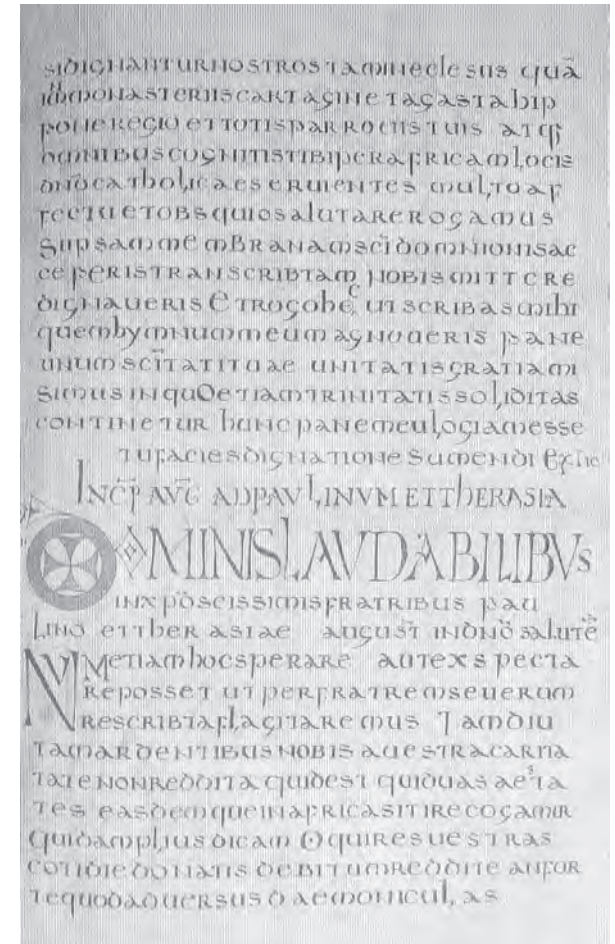 sidignanturnostros taminecleśiis quā
inmonasteriis cartagine tagasta hip
poneregio ettotis parrociis tuis atq;
omnibus cognitis tibi per africam locis
dn̄o catholicae seruientes multo af
fectu et obsquio salutare rogamus
si ipsam membranam sci domnionis ac
ceperis transcribtam nobis mittere
dignaueris et rogo hęc ut scribas mihi
quem hymnum meum agnoueris pane
unum sc̄itati tuae unitatis gratia mi
simus in quo etiam trinitatis soliditas
continetur hunc panem eulogiam esse
tu facies dignatione sumendi exp lic
INCP̄ AVḠ AD PAVLINVM ET THERASIA
DOMINIS LAVDABILIBVS
in xp̄o sc̄issimis fratribus pau
lino et therasiae august̄ in dn̄o salutē
NVM etiam hoc sperare aut exspecta
re posset ut per fratrem seuerum
rescribta flagitaremus tam diu
tam ardentibus nobis a uestra carita
tate non reddita quid est quid uas aesta
tes easdemque in africa sitire cogamur
quid amplius dicam o qui res uestras
cotidie donatis debitum reddite an for
te quod aduersus daemonicolas